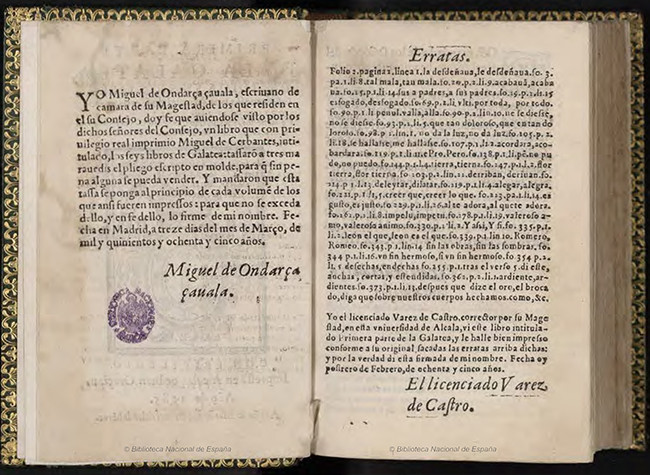 YO Miguel de Ondarça çauala, escriuano de
camara de su Magestad, de los que residen en
el su Consejo, doy fe que auiendose visto por los
dichos señores del Consejo, vn libro que con pri-
uilegio real imprimio Miguel de Cerbantes, inti-
tulado, los seys libros de Galatea: tassarõ a tres ma
rauedis el pliego escripto en molde, para q̃ sin pe
na alguna se pueda vender. Y mandaron que esta
tassa se ponga al principio de cada volumẽ de los
que ansi fueren impressos: para que no se exceda
dello, y en fe dello, lo firme de mi nombre. Fe-
cha en Madrid, a treze dias del mes de Março, de
mil y quinientos y ochenta y cinco años.
Miguel de Ondarça
çauala.
Erratas.
Folio 2. pagina 1. linea 1. la desdeñaua, le desdeñaua. fo. 3.
pa. 1. li. 8. tal mala, tan mala. fo. 10. p. 2. li. 9. acabauã, acaba
ua. fo. 15. p. 1. li. 14. sus a padres, a sus padres. fo. 19. p. 1. li. 15
esfogado, desfogado. fo. 69. p. 1. li. vlti. por toda, por todo.
fo. 90. p. 1. li penul. valia, alla. fo. 90. p. 2. lin. 10. ne se diesse,
no se diesse. fo. 93. p. 1. li. 5. que tan doloroso, que en tan do
loroso. fo. 98. p 1. lin. 1. no da la luz, no da luz. fo. 105. p. 2.
li. 18. se hallasse, me hallasse. fo. 107. p. 1. li 2. acordara, aco-
bardara. fo. 119. p. 1. li me Pro. Pero. fo. 138. p. 1. li. pe. no pu
do, no puedo. fo. 144. p. 1. l. 4. tierra, tierno. fo. 147. p. 1. l. 2. flor
tierra, flor tierna. fo. 103. p. 2. lin. 11. derriban, deriuan. fo.
214. p 1. l 13. deleytar, dilatar. fo. 219. p. 1. li. 4. alegar, alegra.
fo. 221. p 1. l 5. creer que, creer lo que. fo. 213. pa. 1. li. 14. es
gusto, es justo. fo 229. p. 1. li. 16. al te adora, al que te adora.
fo. 261. p. 1. li 8. impelu, impetu. fo. 178. p. 1. li. 19. valeroso a-
mo, valeroso animo. fo. 330. p. 1. li. 2. Y assi, Y si. fo. 335. p. 1.
li. 2. leon el que, leon es el que. fo. 339. p. 1. lin 10. Romero,
Romeo. fo. 343. p. 1. lin. 14 sin las obras, sin las sombras. fo.
344 p. 1. li. 16. vn sin hermoso, si vn sin hermoso. fo. 354 p. 2.
li. 1 desechas, endechas fo. 355. p. 1. tras el verso 5. di este,
anchas, cortas, y estendidas. fo. 362. p 1. li. 1. ardiente, ar-
dientes. fo. 373. p. 1. li. 13. despues que dize el oro, el broca
do, diga que sobre nuestros cuerpos hechamos. como, &c.
Yo el licenciado Varez de Castro, corrector por su Mage
stad, en esta vniuersidad de Alcala, vi este libro intitula-
do Primera parte de la Galatea, y le halle bien impresso
conforme a su original, sacadas las erratas arriba dichas:
y por la verdad di esta firmada de mi nombre. Fecha oy
postrero de Febrero, de ochenta y cinco años.
El licenciado Varez
de Castro.
© Biblioteca Nacional de España
© Biblioteca Nacional de España